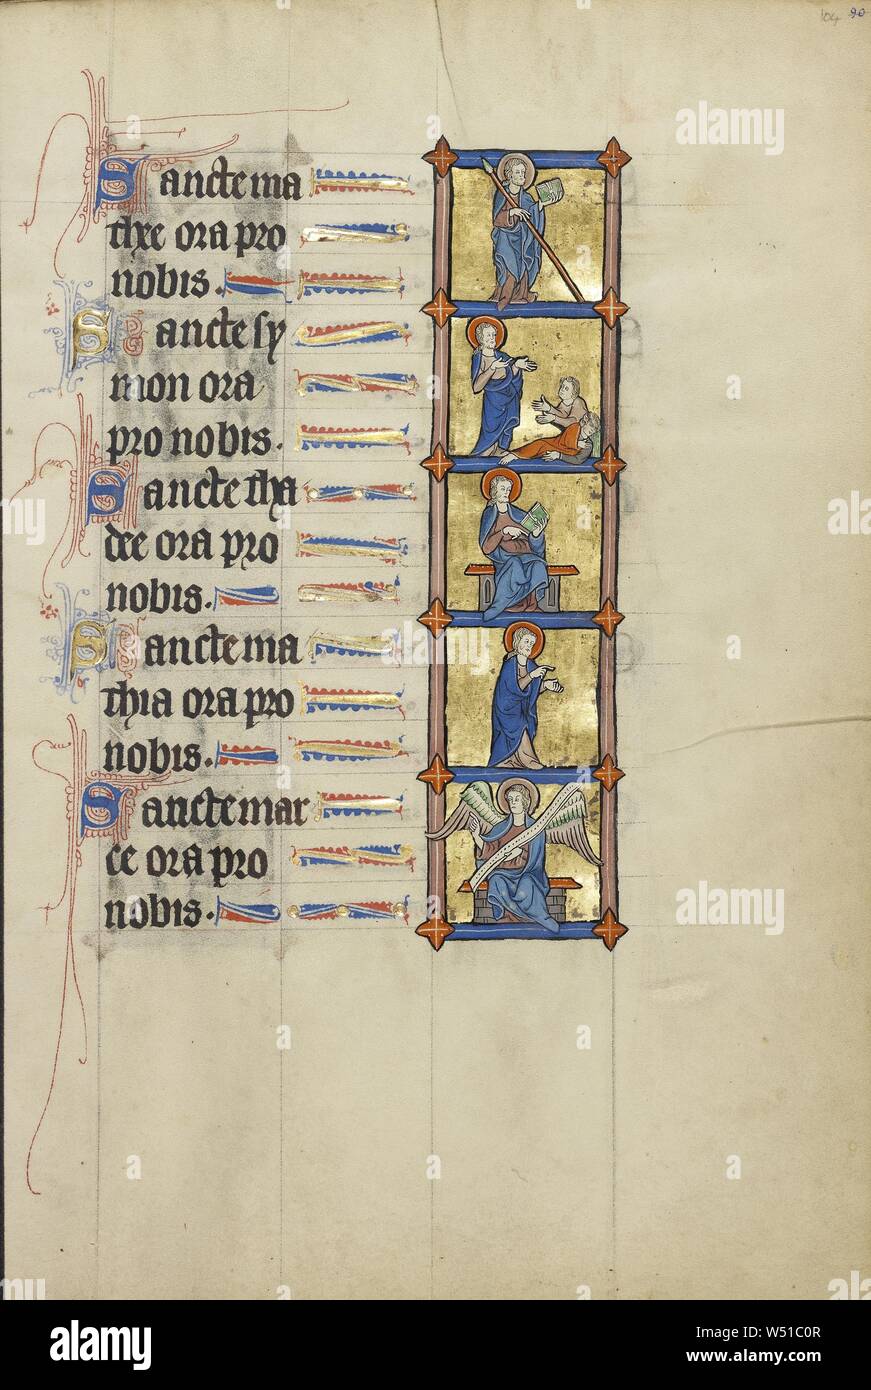 104 90
Sancte ma
thee ora pro
nobis.
Sancte sy
mon ora
pro nobis.
Sancte tha
dee ora pro
nobis.
Sancte ma
thia ora pro
nobis.
Sancte mar
ce ora pro
nobis.
alamy
Image ID: W51C0R
www.alamy.com